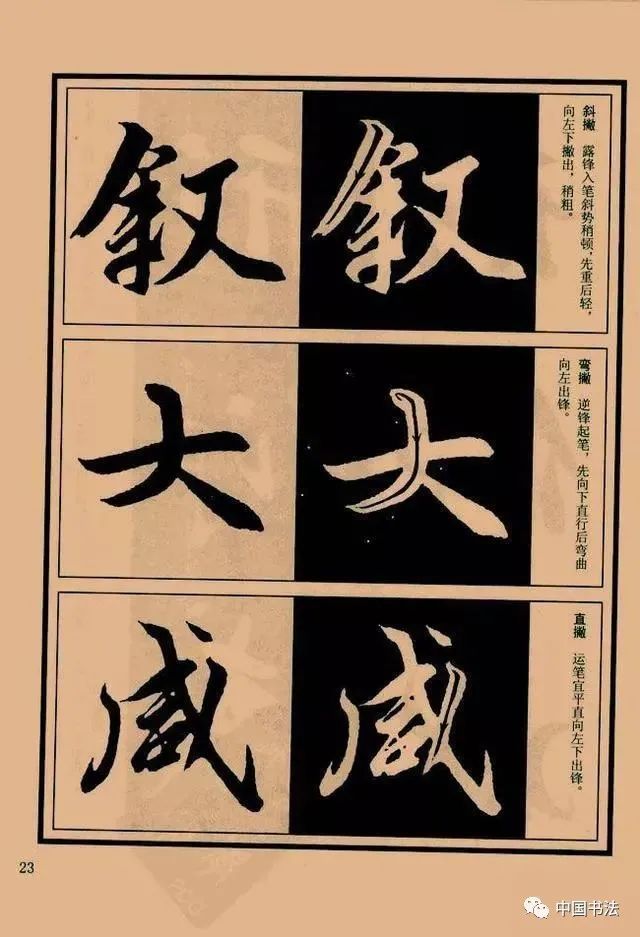 斜撇 露锋入笔斜势稍顿，先重后轻，
向左下撇出，稍粗。
叙
叙
弯撇 逆锋起笔，先向下直行后弯曲
向左出锋。
大
大
直撇 运笔宜平直向左下出锋。
咸
咸
23
中国书法